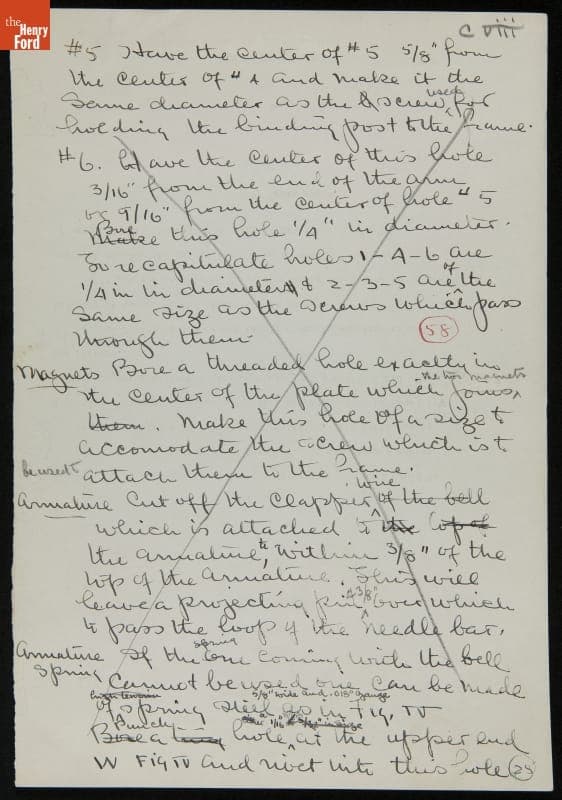 the
Henry
Ford
C viii
#5 Have the center of #5 5/8" from
the center of #4 and make it the
same diameter as the screw used for
holding the binding post to the frame.
#6. Have the center of this hole
3/16" from the end of the arm
or 9/16" from the center of hole #5
Make Bore this hole 1/4" in diameter.
To recapitulate holes 1-4-6 are
1/4 in in diameter & 2-3-5 are of the
same size as the screws which pass
through them.
58
Magnets Bore a threaded hole exactly in
the center of the plate which joins the two magnets
them. Make this hole of a size to
accomodate the screw which is to
be used to attach them to the frame.
Armature Cut off the clapper wire of the bell
which is attached to the top of
the armature, to within 3/8" of the
top of the armature. This will
leave a projecting pin 3/8" over which
to pass the loop of the needle bar.
Armature Spring If the spring one coming with the bell
cannot be used one can be made
of high tension spring steel 5/8" wide and .015" gauge as in Fig. IV
Bore Punch a hole at the upper end
W Fig IV and rivet into this hole 25